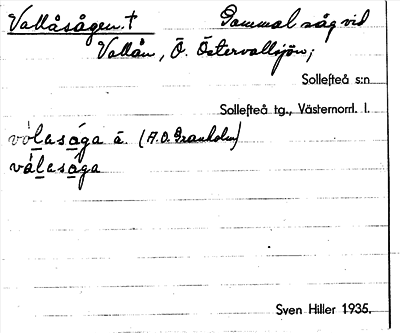 Vallåsågen. † Gammal såg vid
Vallån, Ö. Östervallsjön;
Sollefteå s:n
Sollefteå tg., Västernorrl. l.
vòlasága ä. (A.O. Granholm)
válasága
Sven Hiller 1935.